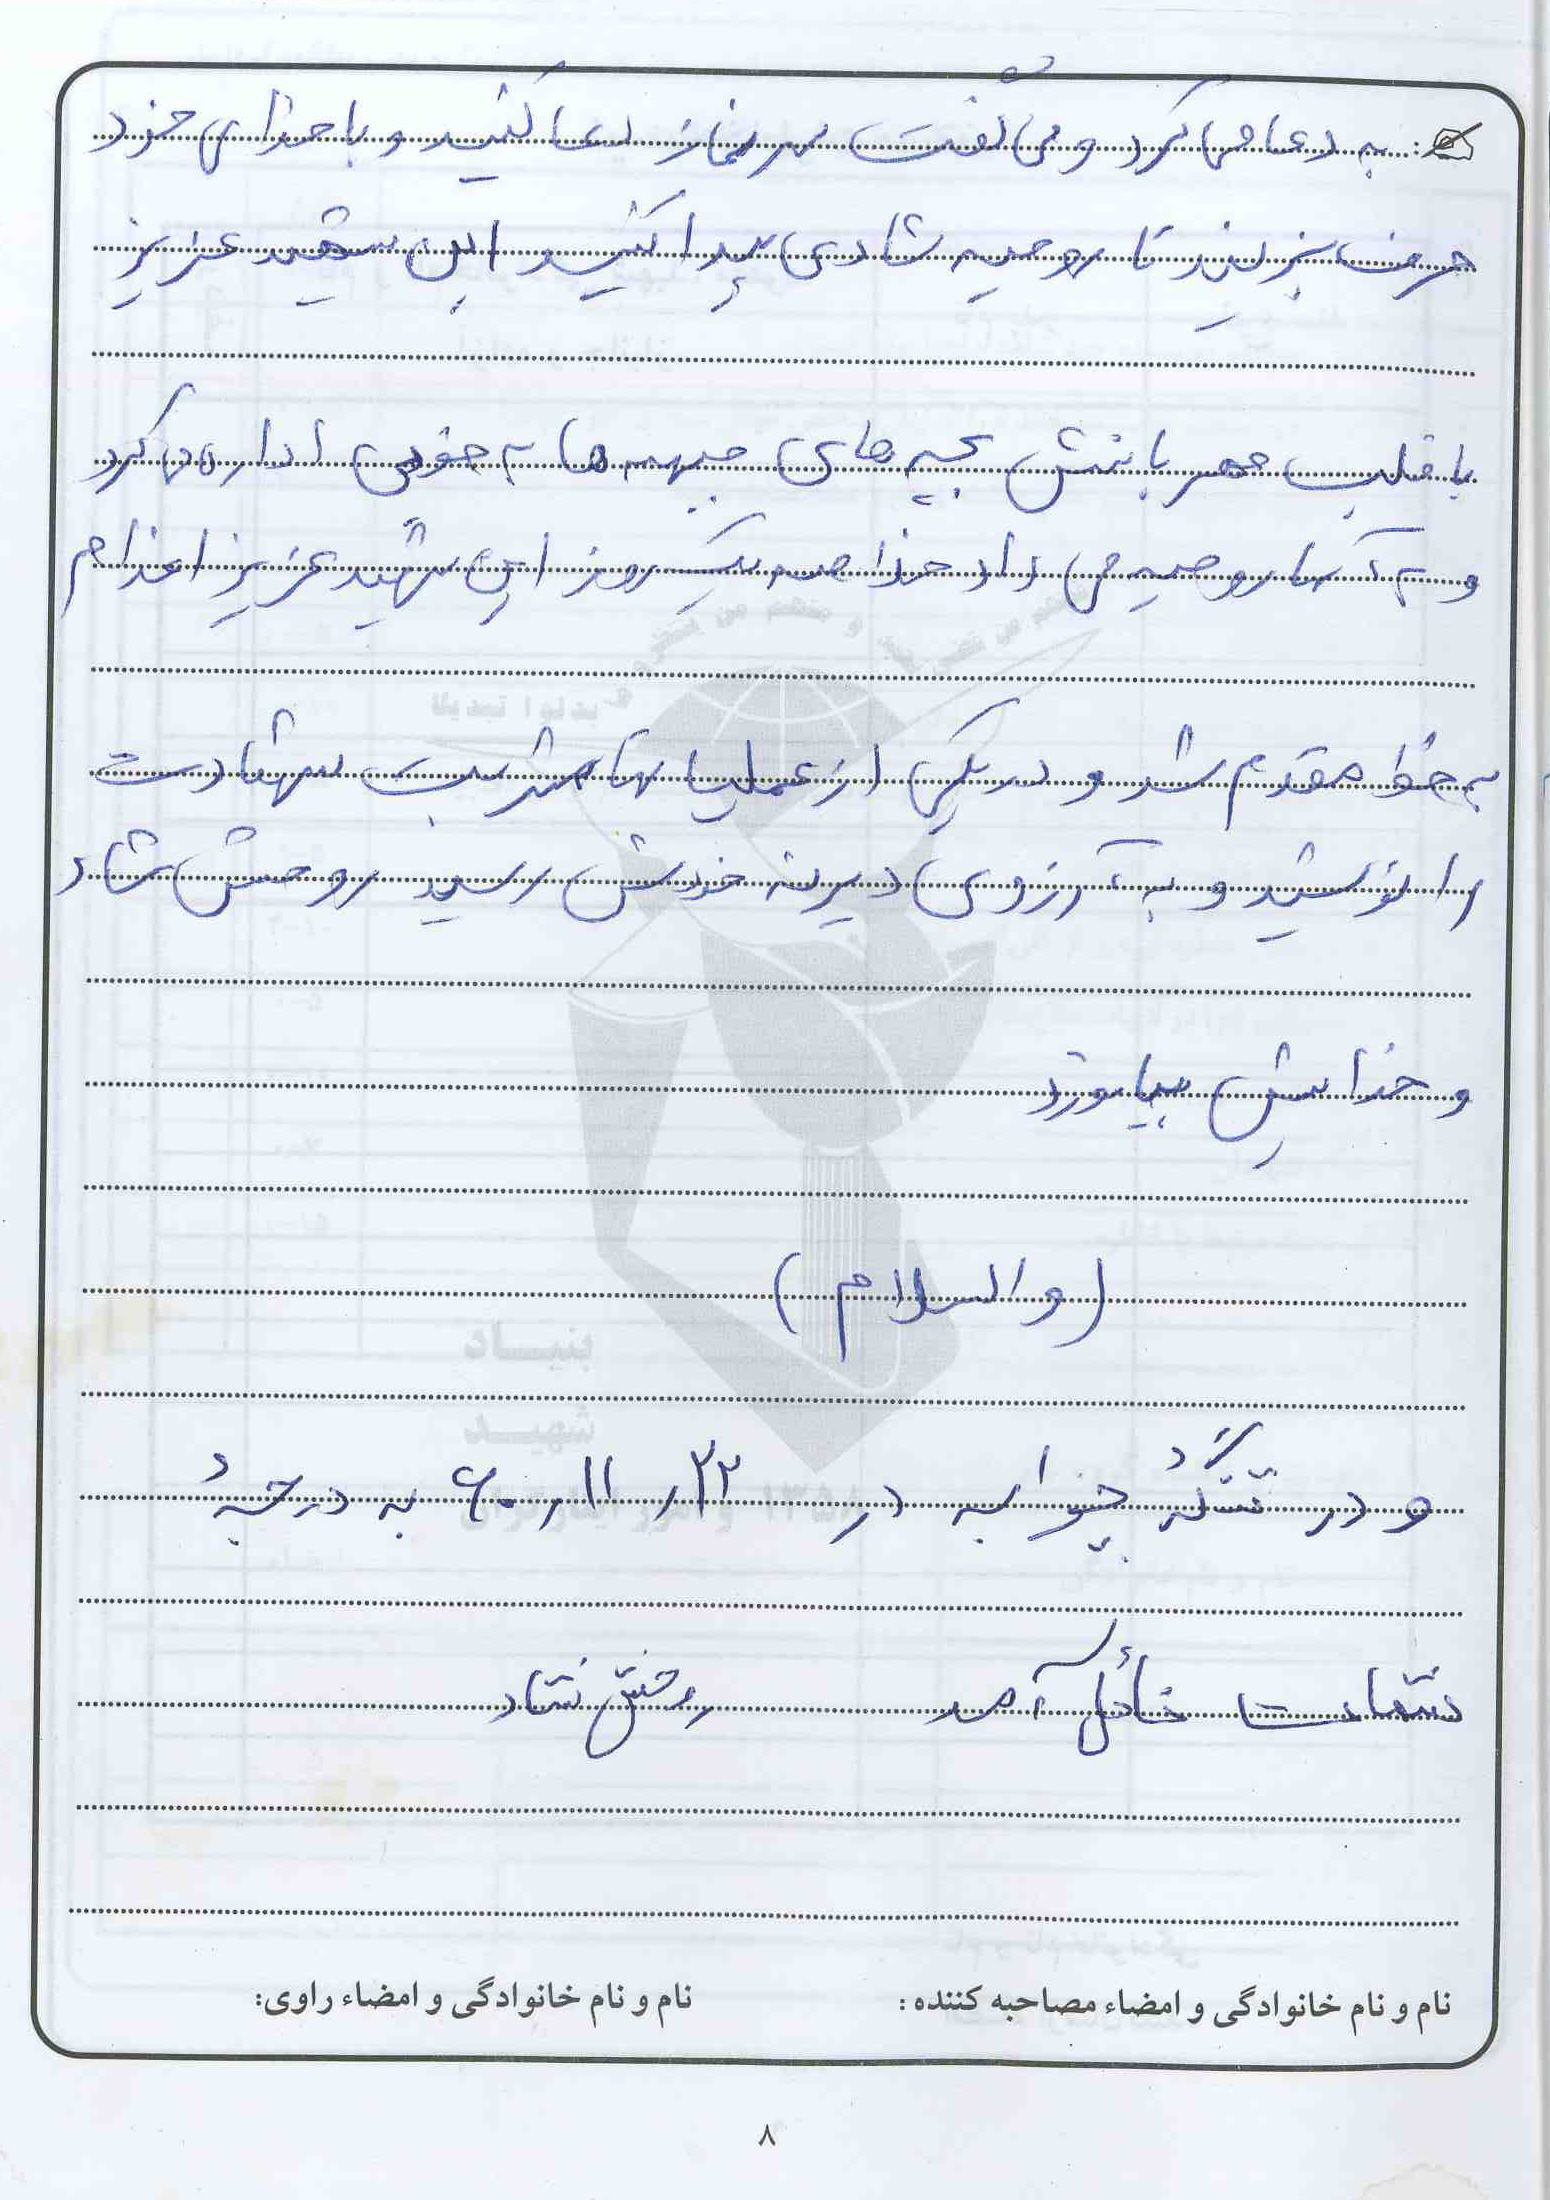 به دعا می کرد و می گفت سر نماز دعا کنید و با خدای خود
حرف بزنید تا روحیه شادی پیدا کنید این شهید عزیز
با قلب مهربانش بچه های جبهه ها به خوبی اداره می کرد
و به آنها روحیه می داد خلاصه یک روز این شهید عزیز اعزام
به خط مقدم شد و در یکی از عملیاتها شربت شهادت
را نوشید و به آرزوی دیرینه خودش رسید روحش شاد
و خدایش بیامرزد
(والسلام)
و در تنگه چزابه در ۲۲ر ۱۱ر ۶۰ به درجه
شهادت نائل آمد روحش شاد
نام و نام خانوادگی و امضاء مصاحبه کننده: نام و نام خانوادگی و امضاء راوی:
۸